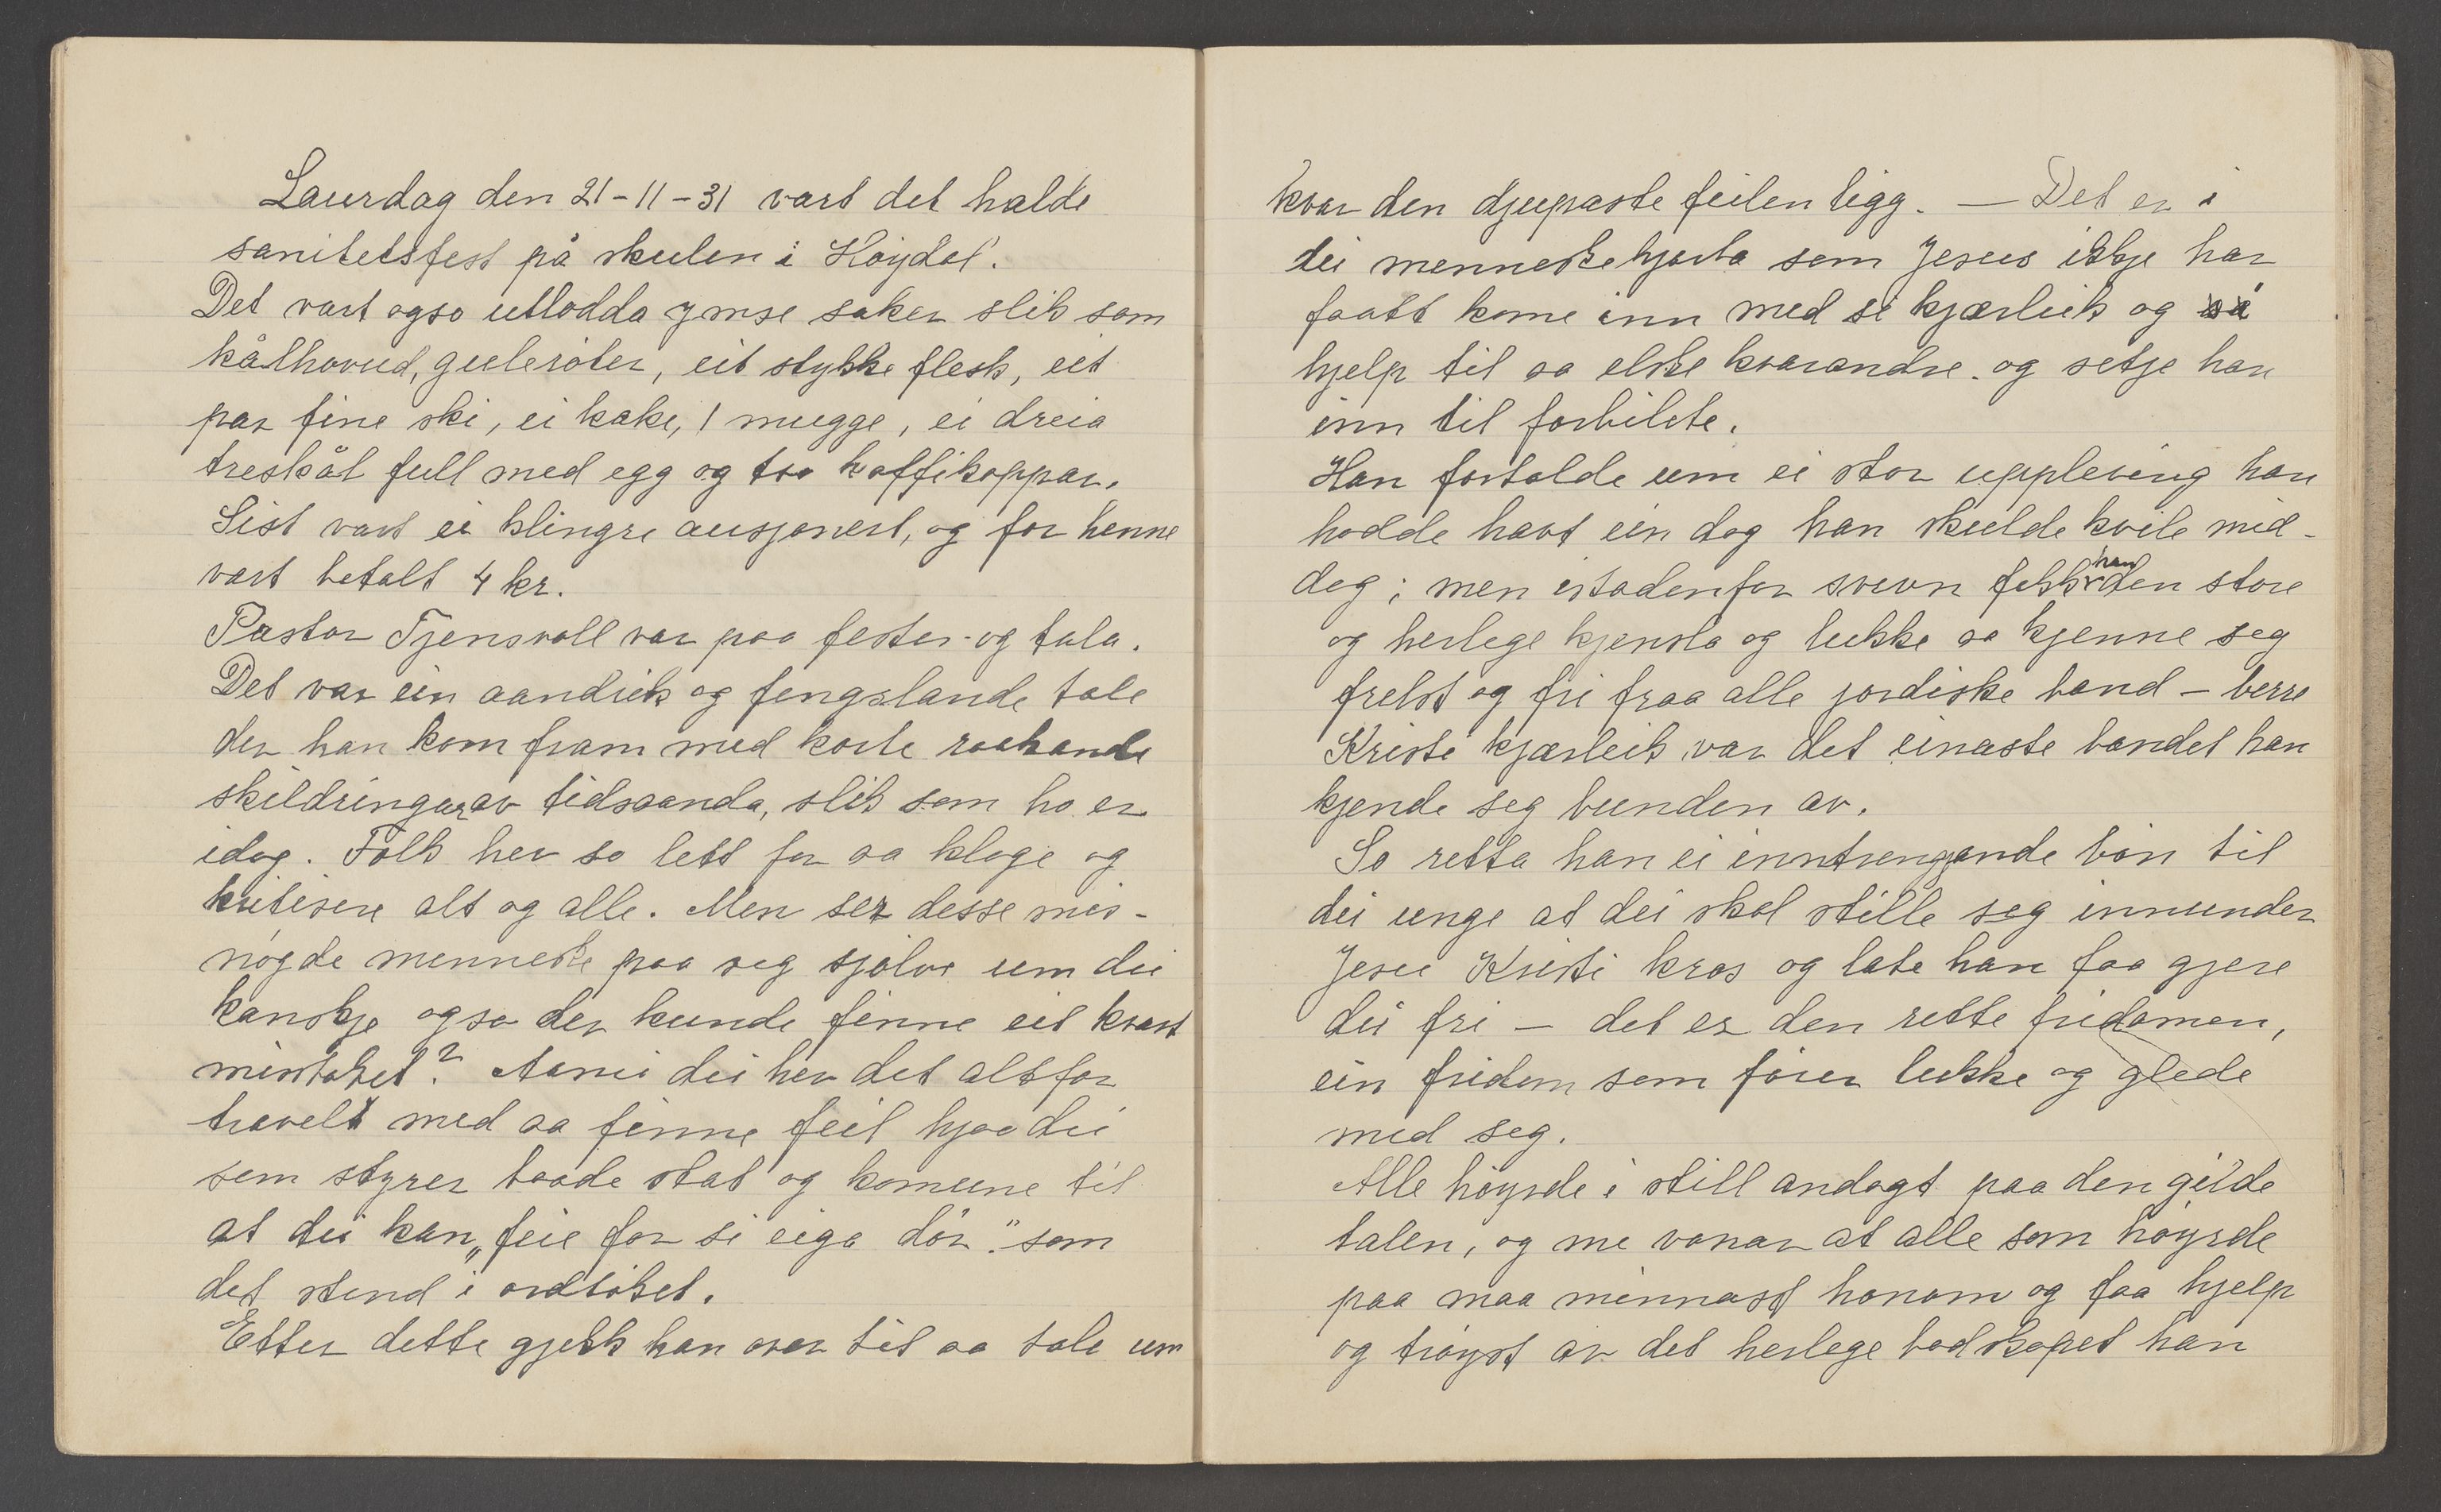 Laurdag den 21-11-31 vart det halde
sanitetsfest på skulen i Høydal.
Det vart ogso utlodda ymse saker slik som
kålhovud, gulerøter, eit stykke flesk, eit
par fine ski, ei kake, 1 mugge, ei dreia
treskål full med egg og tvo kaffikoppar.
Sist vart ei klingre ausjonert, og for henne
vart betalt 4 kr.
Pastor Tjensvoll var paa festen og tala.
Det var ein aandrik og fengslande tale
der han kom fram med korte raakande
skildringar av tidsaanda, slik som ho er
idag. Folk hev so lett for aa klage og
kritisere alt og alle. Men ser desse mis-
nøgde menneske paa seg sjølve um dei
kanskje ogso der kunde finne eit kvart
mistaket? Aanei dei hev det altfor
travelt med aa finne feil hjaa dei
som styrer baade stat og komune til
at dei kan „feie for si eiga dør." som
det stend i ordtøket.
Etter dette gjekk han over til aa tale um
kvar den djupaste feilen ligg. — Det er i
dei menneskehjarta som Jesus ikkje har
faatt kome inn med si kjærleik og så
hjelp til aa elske kvarandre. og setje han
inn til forbilete.
Han fortalde um ei stor uppleving han
hadde havt ein dag han skulde kvile mid-
dag; men istadenfor svevn fekk han den store
og herlege kjensla og lukke aa kjenne seg
frelst og fri fraa alle jordiske band - berre
Kristi kjærleik var det einaste bandet han
kjende seg bunden av.
So retta han ei inntrengjande bøn til
dei unge at dei skal stille seg innunder
Jesu Kristi kros og late han faa gjere
dei fri - det er den rette fridomen,
ein fridom som fører lukke og glede
med seg.
Alle høyrde i still andagt paa den gilde
talen, og me vonar at alle som høyrde
paa maa minnast honom og faa hjelp
og trøyst av det herlege bodskapet han